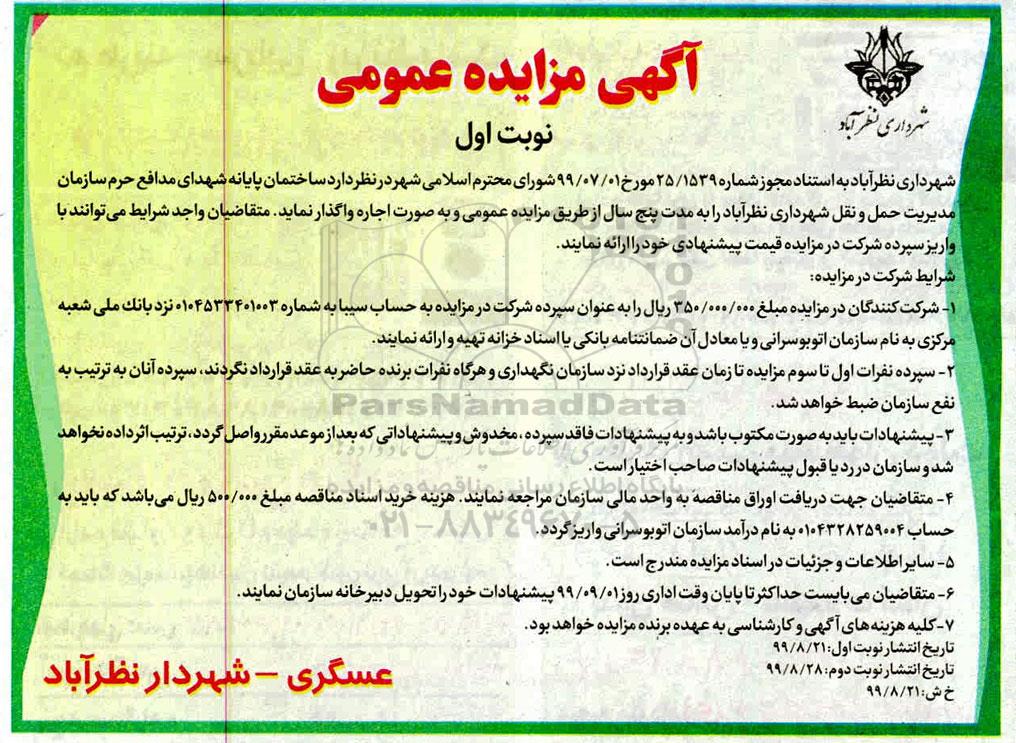 شهرداری نظرآباد
آگهی مزایده عمومی
نوبت اول
شهرداری نظرآباد به استناد مجوز شماره ۲۵/۱۵۳۹ مورخ ۹۹/۰۷/۰۱ شورای محترم اسلامی شهر در نظر دارد ساختمان پایانه شهدای مدافع حرم سازمان
مدیریت حمل و نقل شهرداری نظرآباد را به مدت پنج سال از طریق مزایده عمومی و به صورت اجاره واگذار نماید. متقاضیان واجد شرایط می‌توانند با
واریز سپرده شرکت در مزایده قیمت پیشنهادی خود را ارائه نمایند.
شرایط شرکت در مزایده:
۱- شرکت کنندگان در مزایده مبلغ ۳۵۰/۰۰۰/۰۰۰ ریال را به عنوان سپرده شرکت در مزایده به حساب سیبا به شماره ۰۱۰۴۵۳۳۴۰۱۰۰۳ نزد بانک ملی شعبه
مرکزی به نام سازمان اتوبوسرانی و یا معادل آن ضمانتنامه بانکی یا اسناد خزانه تهیه و ارائه نمایند.
۲- سپرده نفرات اول تا سوم مزایده تا زمان عقد قرارداد نزد سازمان نگهداری و هرگاه نفرات برنده حاضر به عقد قرارداد نگردند، سپرده آنان به ترتیب به
نفع سازمان ضبط خواهد شد.
۳- پیشنهادات باید به صورت مکتوب باشد و به پیشنهادات فاقد سپرده، مخدوش و پیشنهاداتی که بعد از موعد مقرر واصل گردد، ترتیب اثر داده نخواهد
شد و سازمان در رد یا قبول پیشنهادات صاحب اختیار است.
۴- متقاضیان جهت دریافت اوراق مناقصه به واحد مالی سازمان مراجعه نمایند. هزینه خرید اسناد مناقصه مبلغ ۵۰۰/۰۰۰ ریال می‌باشد که باید به
حساب ۰۱۰۴۳۲۸۲۵۹۰۰۴ به نام درآمد سازمان اتوبوسرانی واریز گردد.
۵- سایر اطلاعات و جزئیات در اسناد مزایده مندرج است.
۶- متقاضیان می‌بایست حداکثر تا پایان وقت اداری روز ۹۹/۰۹/۰۱ پیشنهادات خود را تحویل دبیرخانه سازمان نمایند.
۷- کلیه هزینه‌های آگهی و کارشناسی به عهده برنده مزایده خواهد بود.
تاریخ انتشار نوبت اول: ۹۹/۸/۲۱
تاریخ انتشار نوبت دوم: ۹۹/۸/۲۸
خ ش: ۹۹/۸/۲۱
عسگری – شهردار نظرآباد
ParsNamadData
پایگاه اطلاع رسانی مناقصه و مزایده